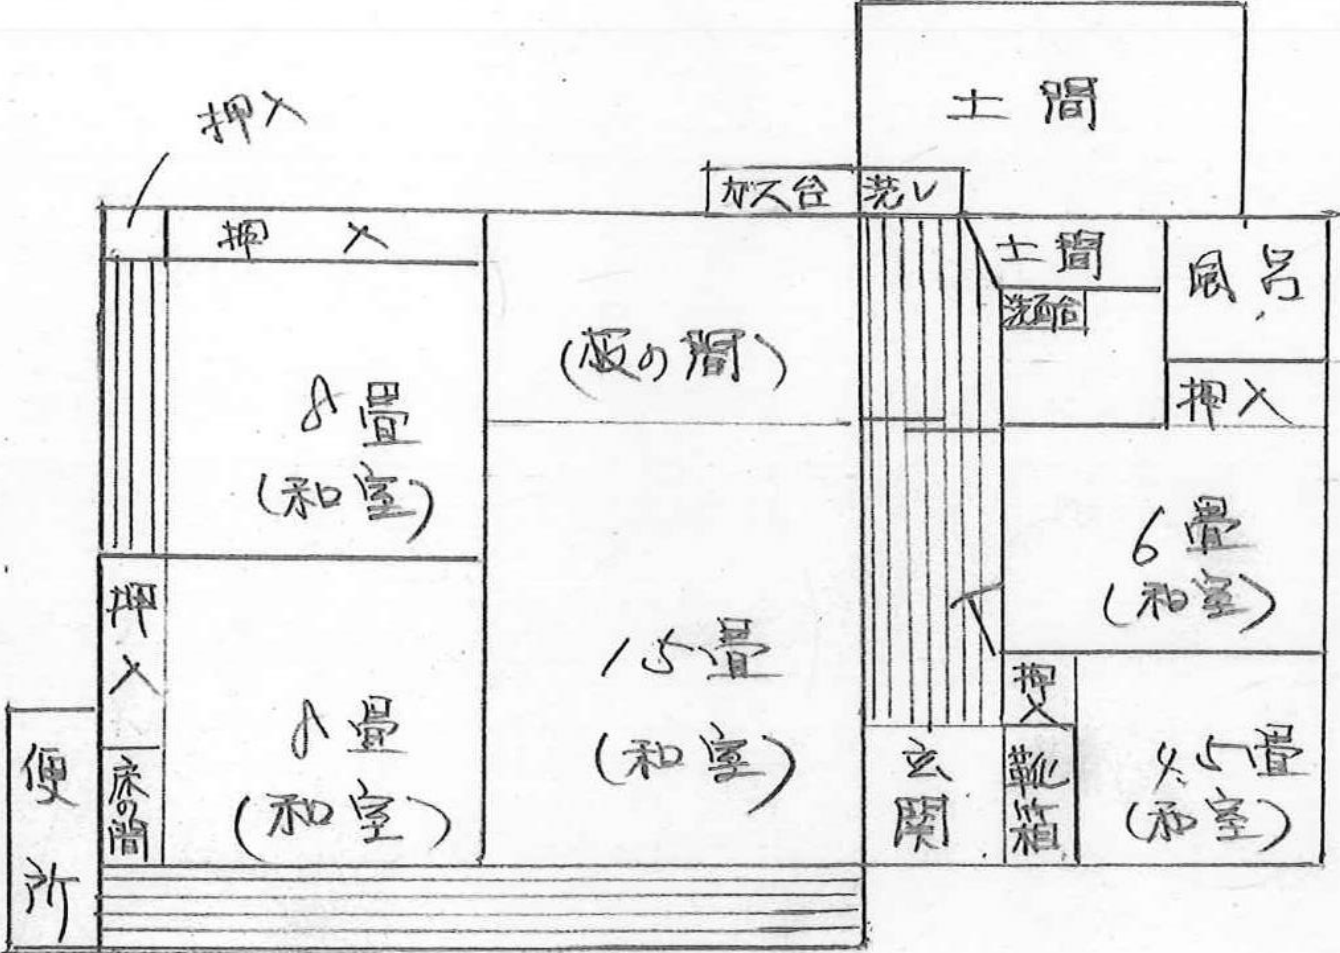 土間
押入
ガス台
洗し
押入
土間
風呂
洗面台
(板の間)
押入
8畳
(和室)
6畳
(和室)
押入
15畳
(和室)
押入
8畳
(和室)
床の間
便所
玄関
靴箱
4.5畳
(和室)